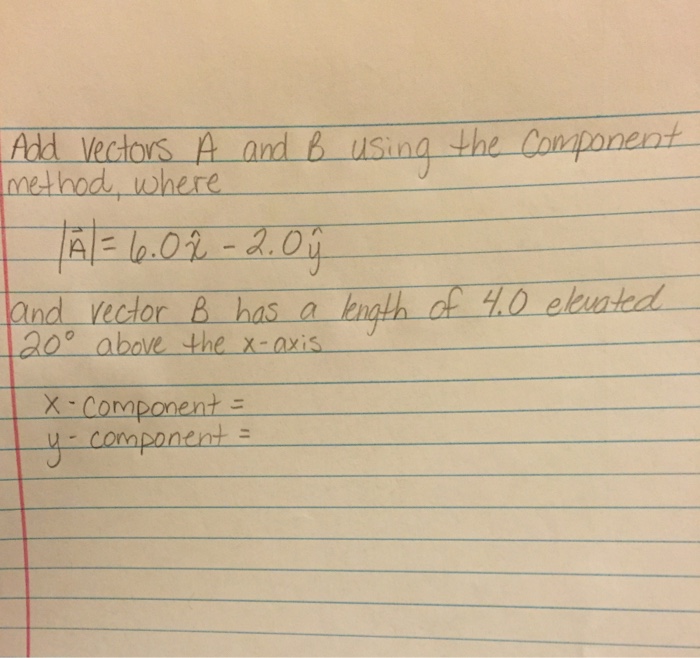 Add vectors A and B using the component
method, where
|A⃗| = 6.0x̂ - 2.0ŷ
and vector B has a length of 4.0 elevated
20° above the x-axis
x-component =
y-component =